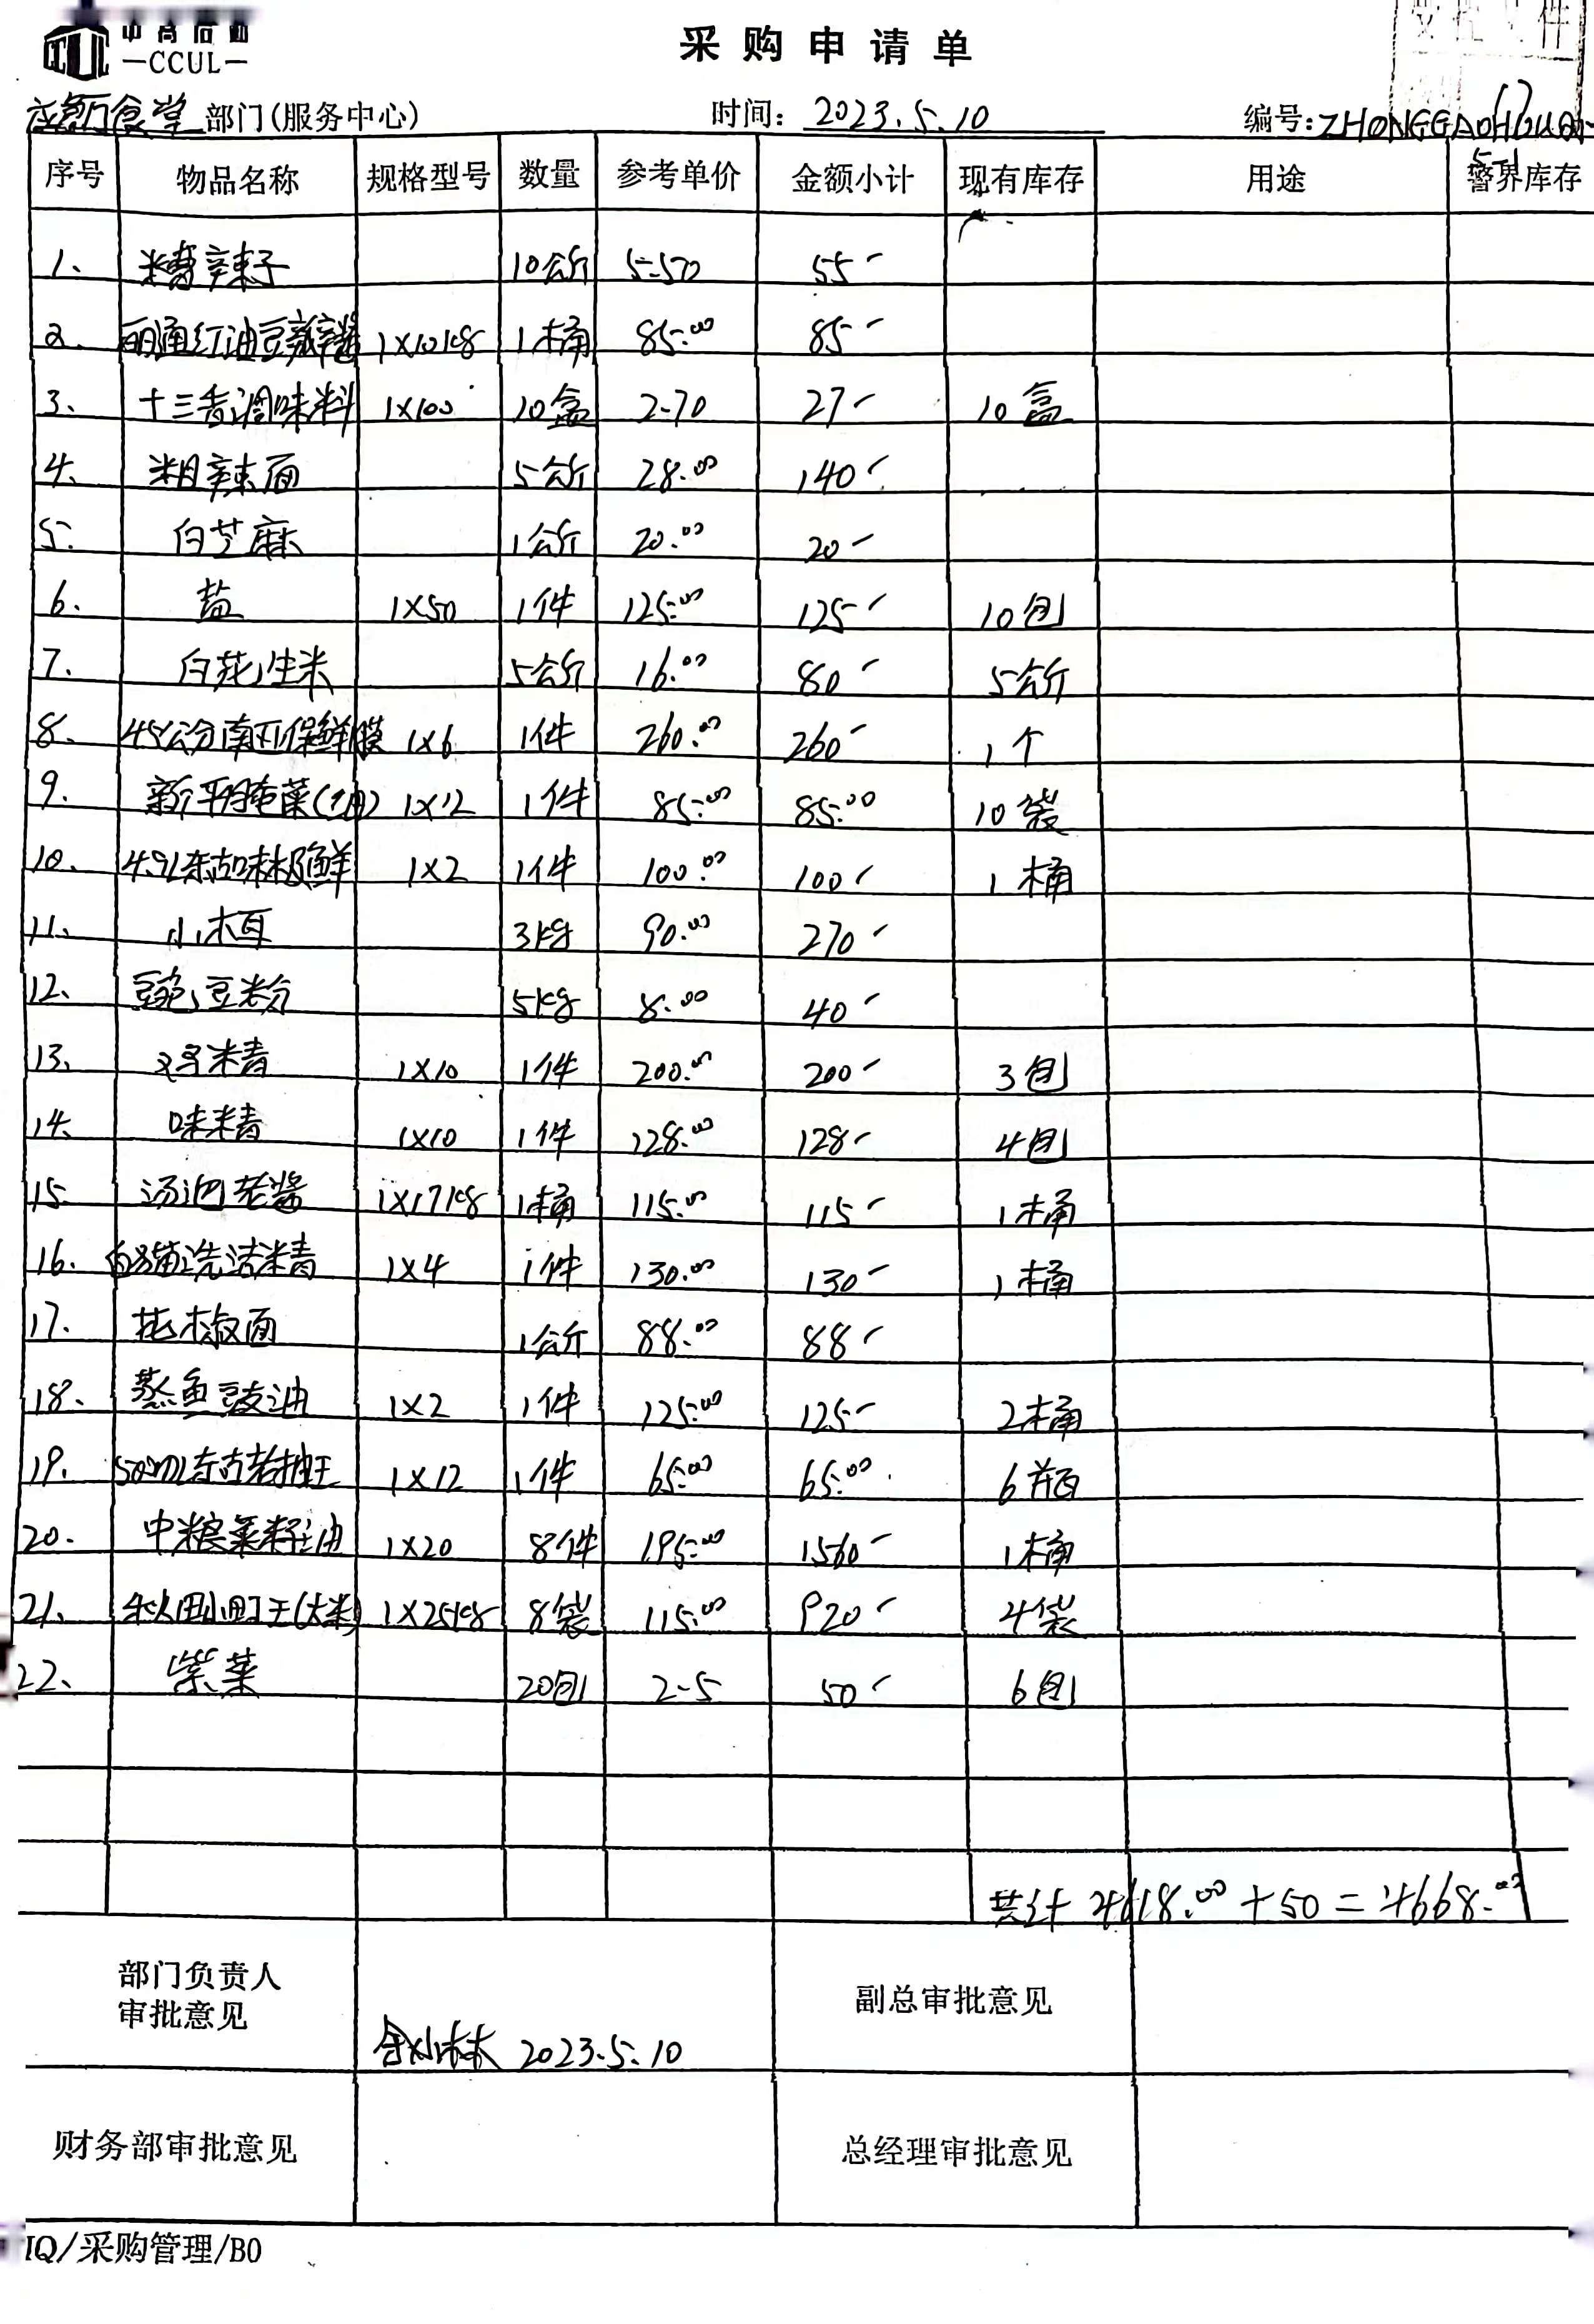 中高后勤
—CCUL—
采购申请单
受控文件
应急厅食堂 部门(服务中心) 时间: 2023.5.10 编号:ZHONGGAOHOUQIN-
序号 物品名称 规格型号 数量 参考单价 金额小计 现有库存 用途 警界库存
1、 糟辣子 10公斤 5.50 55
2. 丽通红油豆瓣酱 1×10kg 1桶 85.00 85
3、 十三香调味料 1×100 10盒 2.70 27 10盒
4、 粗辣面 5公斤 28.00 140
5. 白芝麻 1公斤 20.00 20
6. 盐 1×50 1件 125.00 125 10包
7. 白花生米 5公斤 16.00 80 5公斤
8. 45公分南亚保鲜膜 1×6 1件 260.00 260 1个
9. 新平腌菜 1×12 1件 85.00 85.00 10袋
10. 4.9L东古味极鲜 1×2 1件 100.00 100 1桶
11. 小木耳 3kg 90.00 270
12、 豌豆粉 5kg 8.00 40
13、 鸡精 1×10 1件 200.00 200 3包
14、 味精 1×10 1件 128.00 128 4包
15 汤池老酱 1×17kg 1桶 115.00 115 1桶
16. 白猫洗洁精 1×4 1件 130.00 130 1桶
17. 花椒面 1公斤 88.00 88
18、 蒸鱼豉油 1×2 1件 125.00 125 2桶
19. 500ml东古老抽王 1×12 1件 65.00 65.00 6瓶
20. 中粮菜籽油 1×20 8件 195.00 1560 1桶
21. 秋田小町王(大米) 1×25kg 8袋 115.00 920 4袋
22、 紫菜 20包 2.5 50 6包
共计 4618.00 + 50 = 4668.00
部门负责人
审批意见
副总审批意见
2023.5.10
财务部审批意见 总经理审批意见
IQ/采购管理/B0